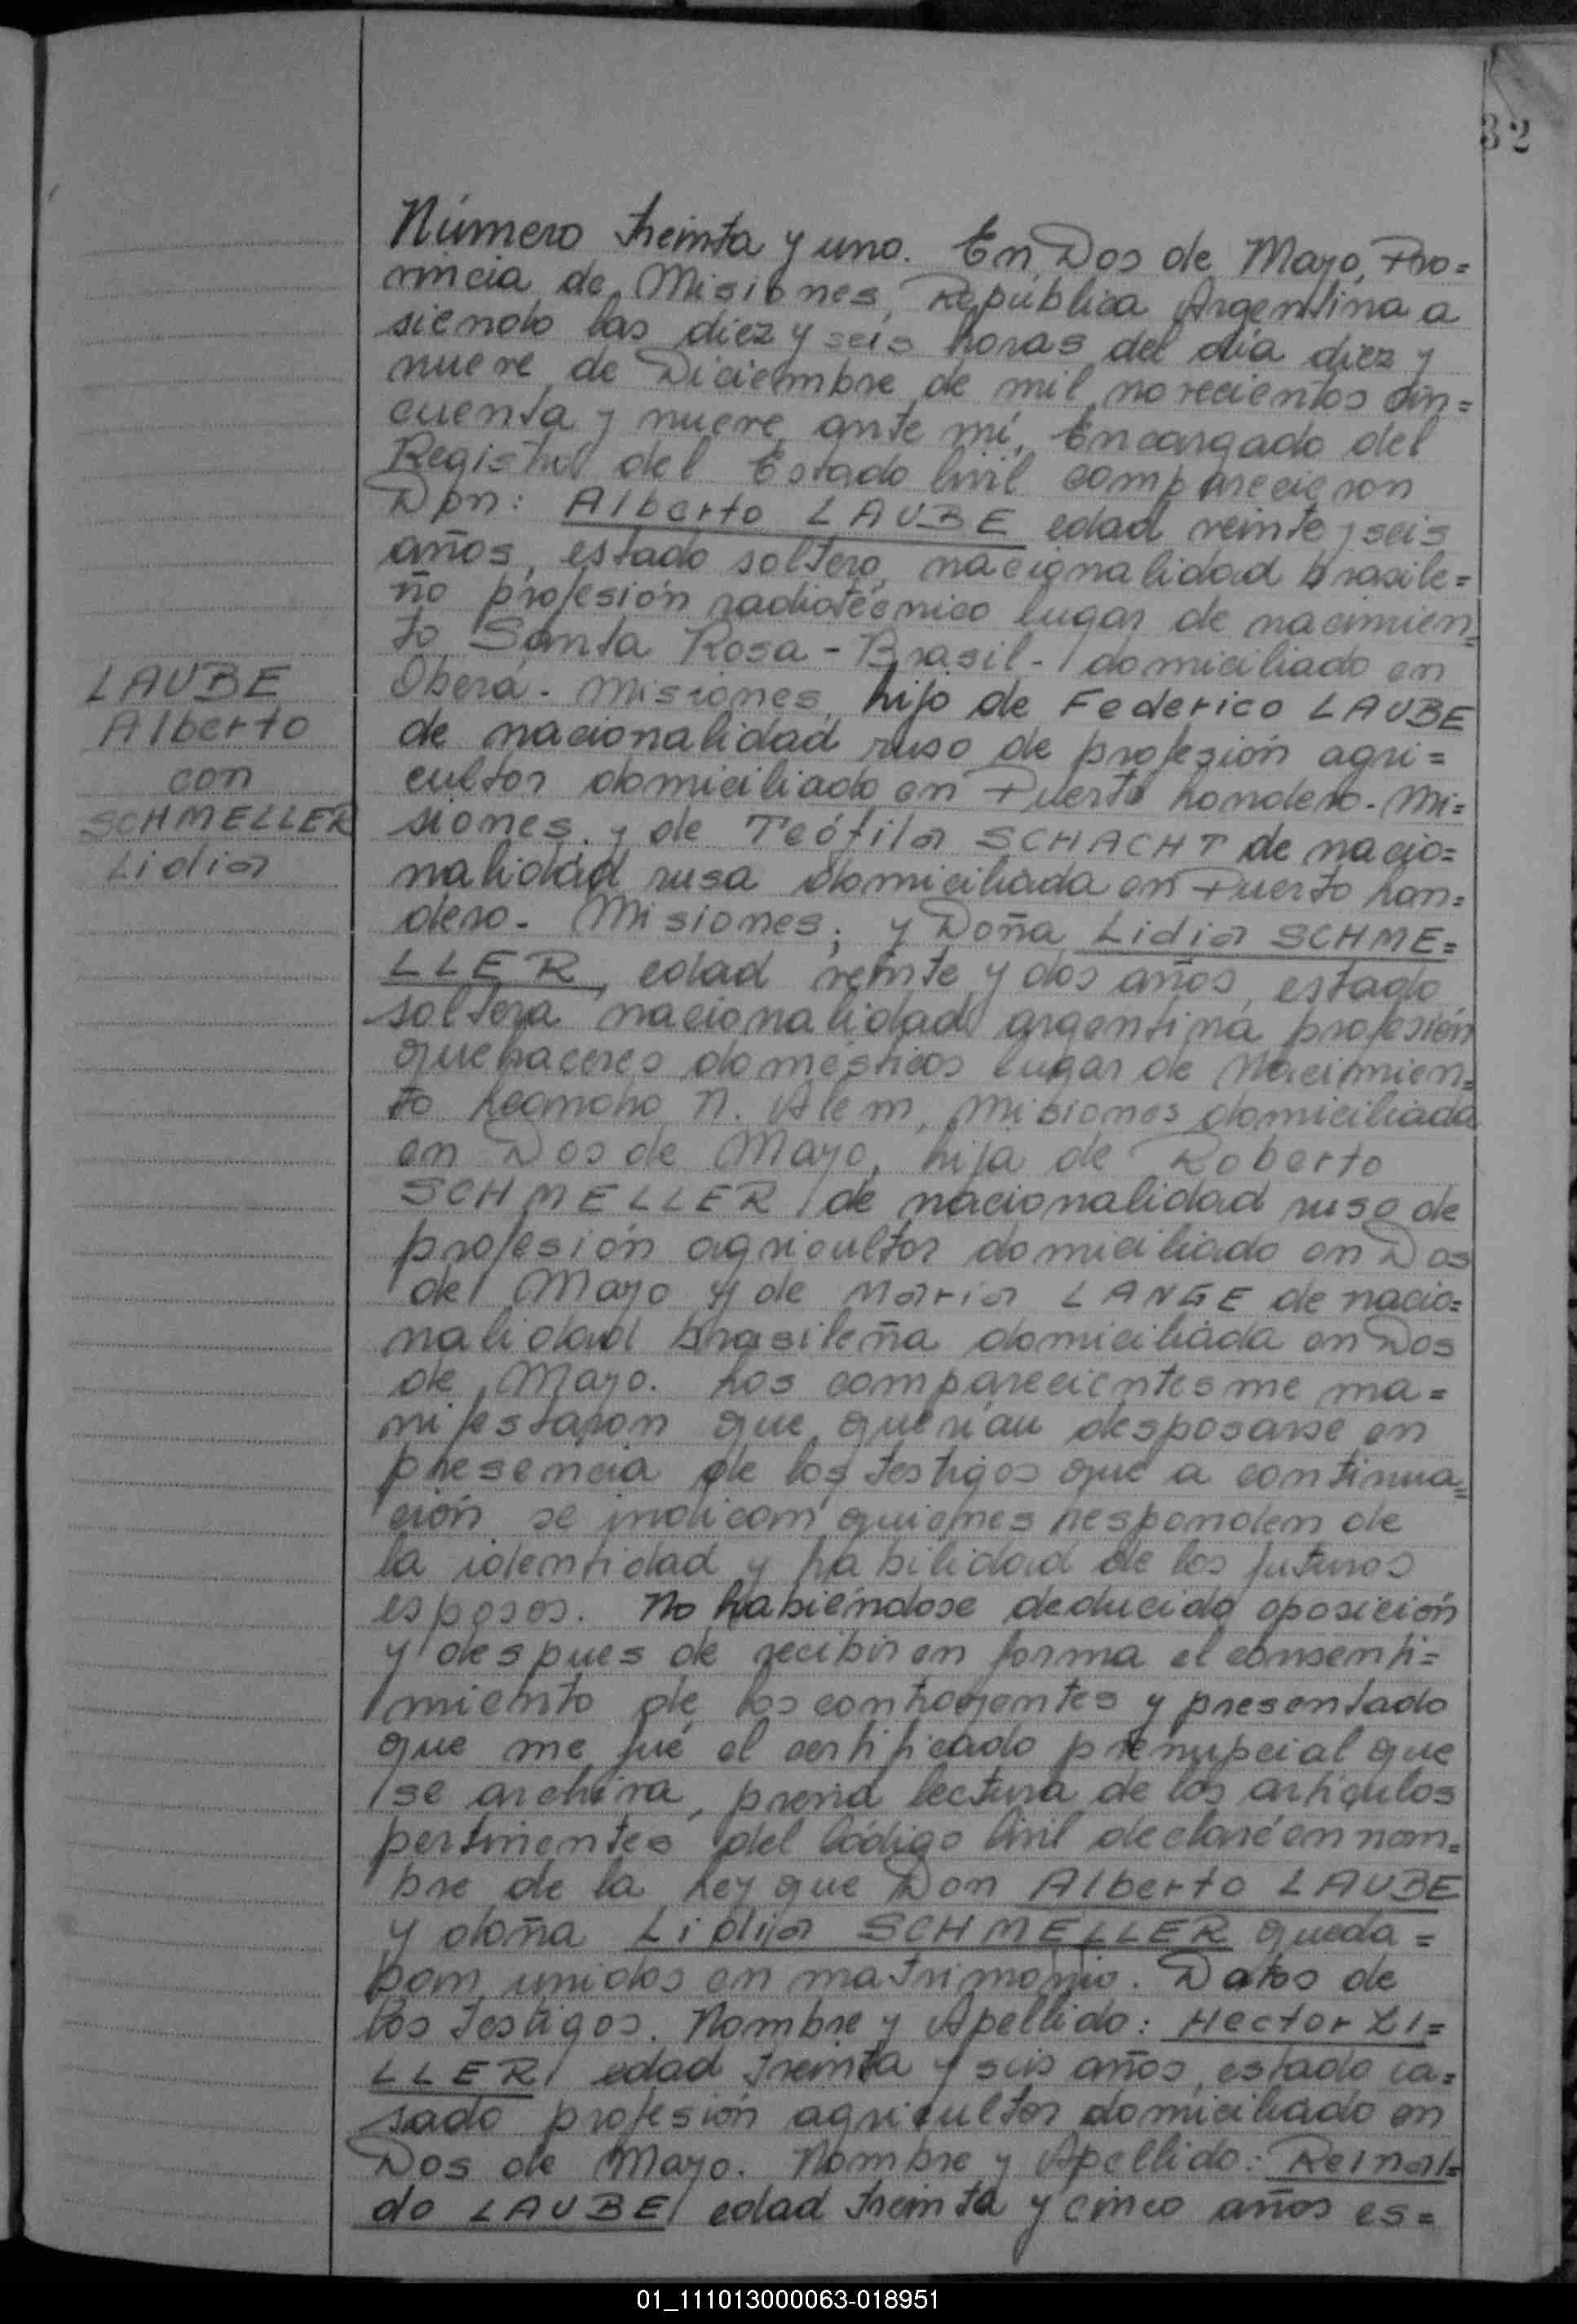 32
Número treinta y uno. En Dos de Mayo, Pro=
vincia de Misiones, República Argentina a
siendo las diez y seis horas del día diez y
nueve de Diciembre de mil novecientos cin=
cuenta y nueve, ante mí, Encargado del
Registro del Estado Civil comparecieron
Don: Alberto LAUBE edad veinte y seis
años, estado soltero, nacionalidad brasile=
ño profesión radiotécnico lugar de nacimien=
to Santa Rosa - Brasil - domiciliado en
Oberá - Misiones, hijo de Federico LAUBE
de nacionalidad ruso de profesión agri=
cultor domiciliado en Puerto Londero - Mi=
siones y de Teófila SCHACHT de nacio=
nalidad rusa domiciliada en Puerto Lon=
dero - Misiones; y Doña Lidia SCHME=
LLER, edad veinte y dos años, estado
soltera nacionalidad argentina profesión
quehaceres domésticos lugar de Nacimien=
to Leandro N. Alem, Misiones domiciliada
en Dos de Mayo, hija de Roberto
SCHMELLER de nacionalidad ruso de
profesión agricultor domiciliado en Dos
de Mayo y de María LANGE de nacio=
nalidad brasileña domiciliada en Dos
de Mayo. Los comparecientes me ma=
nifestaron que querían desposarse en
presencia de los testigos que a continua=
ción se indican quienes responden de
la identidad y habilidad de los futuros
esposos. No habiéndose deducido oposición
y despues de recibir en forma el consenti=
miento de los contrayentes y presentado
que me fué el certificado prenupcial que
se archiva, previa lectura de los artículos
pertinentes del Código Civil declaré en nom=
bre de la Ley que Don Alberto LAUBE
y doña Lidia SCHMELLER queda=
ban unidos en matrimonio. Datos de
los testigos. Nombre y Apellido: Hector ZI=
LLER, edad treinta y seis años, estado ca=
sado profesión agricultor domiciliado en
Dos de Mayo. Nombre y Apellido: Reinal=
do LAUBE, edad treinta y cinco años es=
LAUBE
Alberto
con
SCHMELLER
Lidia
01_111013000063-018951